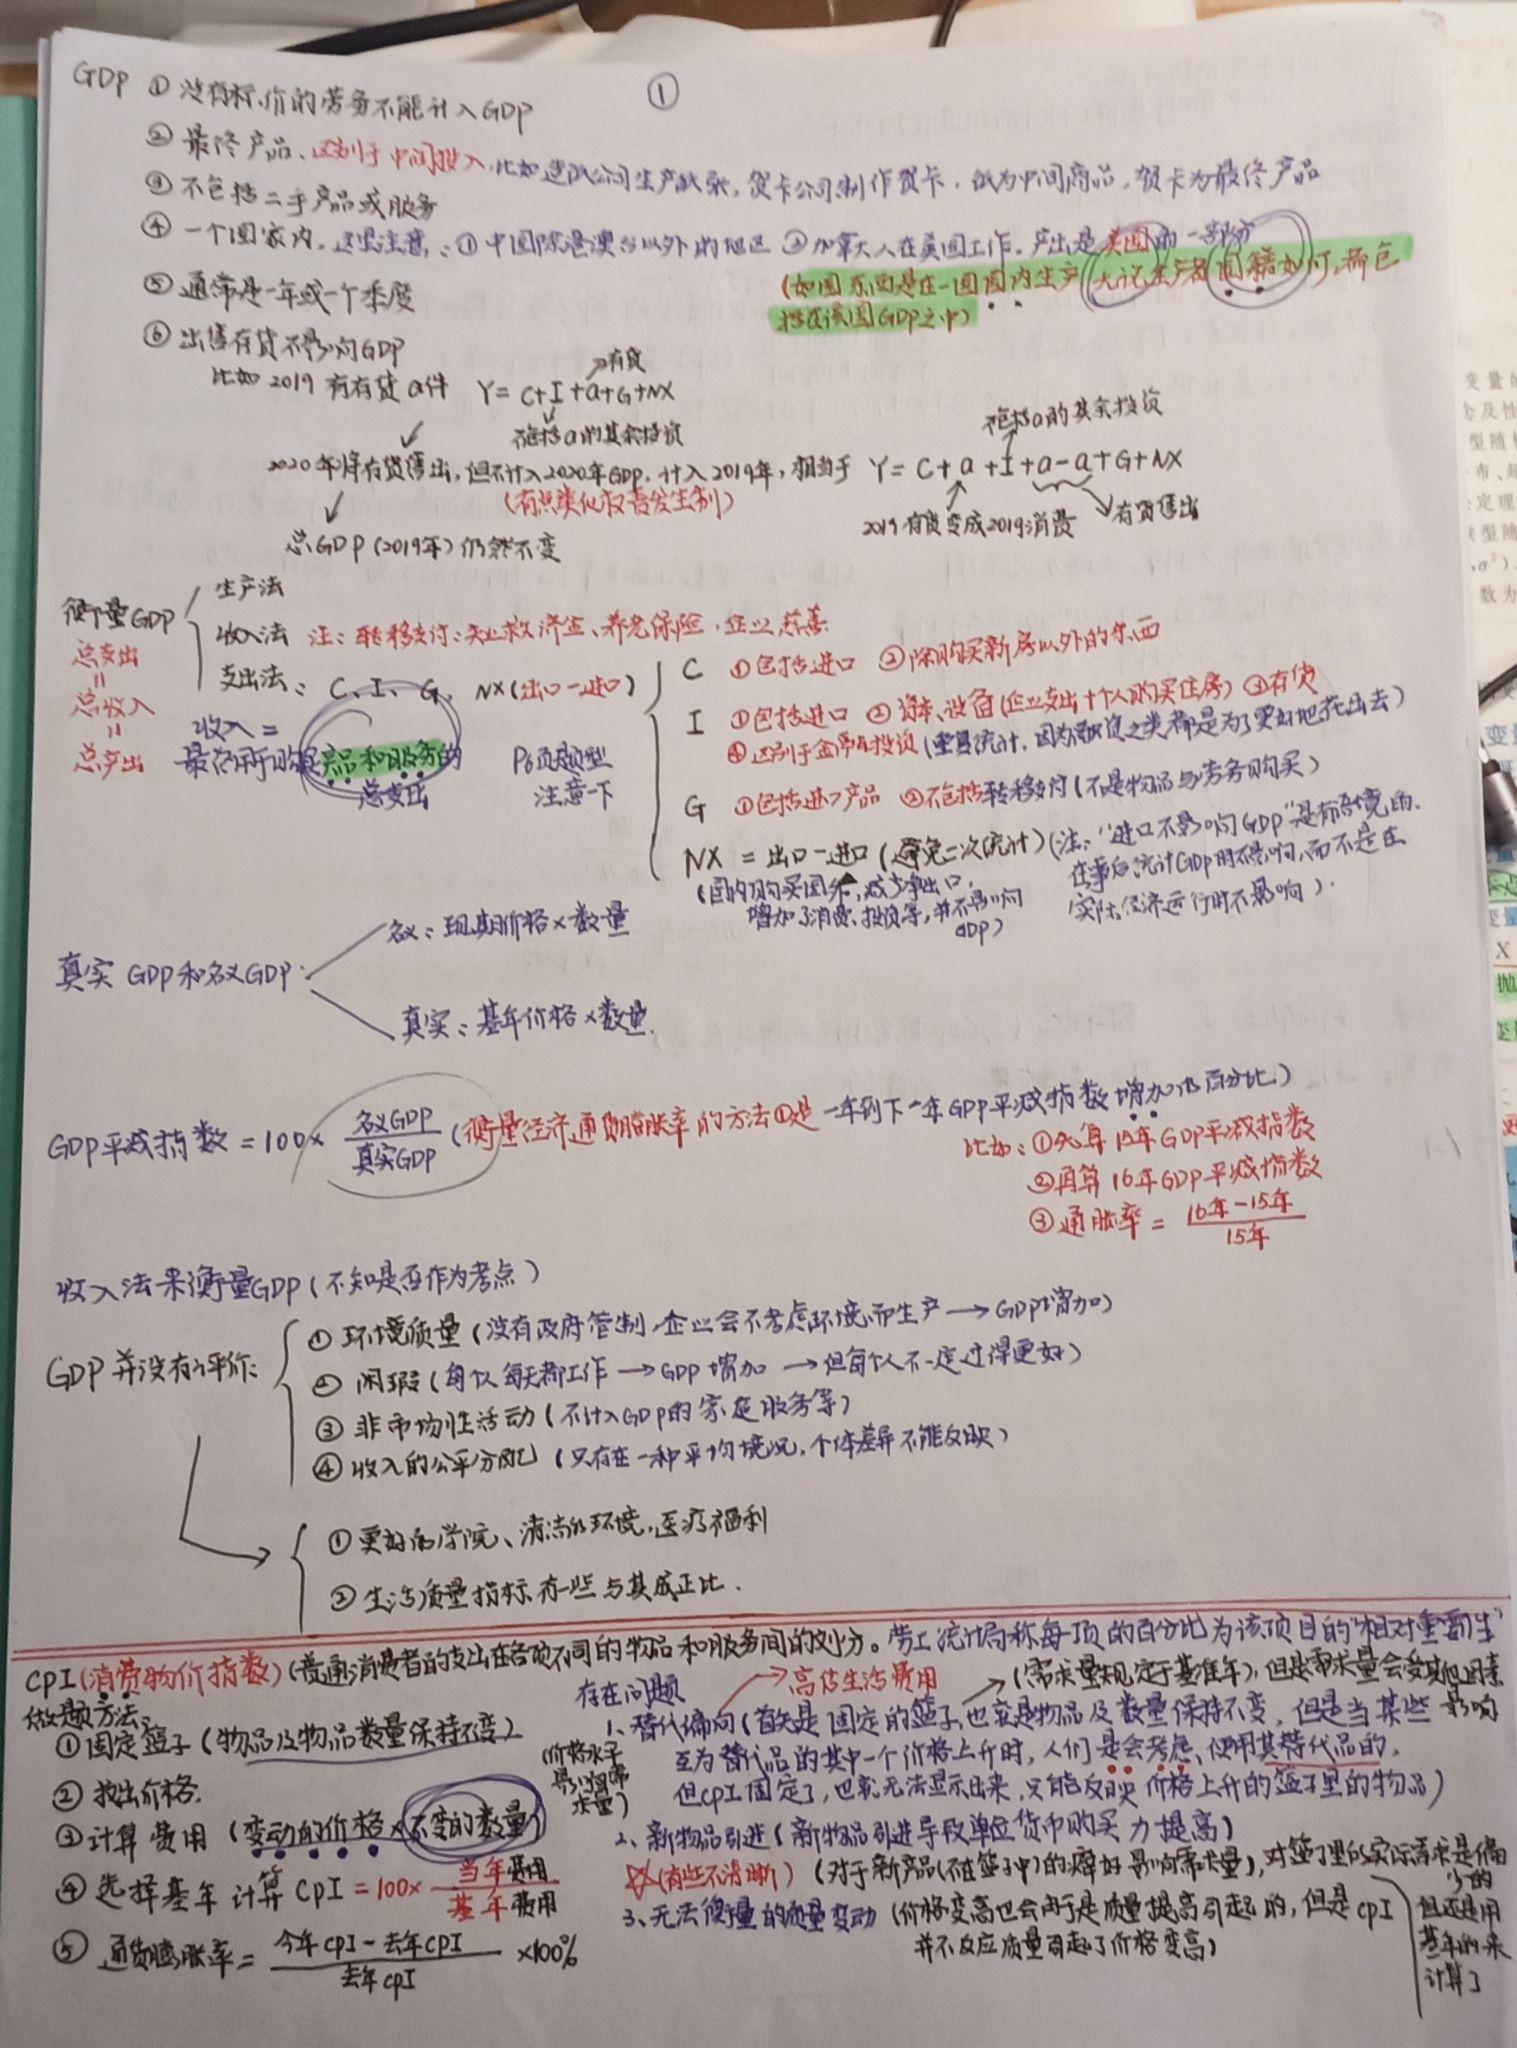 ①
GDP ① 没有标价的劳务不能计入GDP
② 最终产品、区别于中间投入.比如造纸公司生产纸张,贺卡公司制作贺卡.纸为中间商品,贺卡为最终产品
③ 不包括二手产品或服务
④ 一个国家内.这里注意:① 中国除港澳台以外的地区 ② 加拿大人在美国工作.产出是美国的一部分
(如国东西是在一国国内生产 无论生产者国籍如何,都包
括在该国GDP之中)
⑤ 通常是一年或一个季度
⑥ 出售存货不影响GDP
比如 2019 有存货a件 Y= C+I+a+G+NX
存货
不包括a的其余投资
2020年将存货售出,但不计入2020年GDP.计入2019年,相当于 Y= C+a+I+a-a+G+NX
不包括a的其余投资
(有点类似权责发生制)
2019存货变成2019消费
存货售出
总GDP(2019年)仍然不变
衡量GDP
生产法
收入法 注:转移支付:失业救济金、养老保险.企业慈善
支出法: C、I、G、NX(出口-进口)
总支出
=
总收入
=
总产出
收入=
最终所购买产品和服务的
总支出
P6页题型
注意一下
C ①包括进口 ②除购买新房以外的东西
I ①包括进口 ②资本、设备(企业支出+个人购买住房) ③存货
④区别于金融投资(重复统计,因为融资之类都是为了更好地花出去)
G ①包括进口产品 ②不包括转移支付(不是物品与劳务购买)
NX = 出口-进口(避免二次统计)(注:"进口不影响GDP"是有语境的.
在事后统计GDP时不影响,而不是在
实际经济运行时不影响).
(国内购买国外,减少净出口,
增加了消费、投资等,并不影响
GDP)
真实GDP和名义GDP:
名义:现期价格×数量
真实:基年价格×数量.
GDP平减指数=100× 名义GDP/真实GDP (衡量经济通货膨胀率的方法①是 一年到下一年GDP平减指数增加的百分比)
比如:①先算15年GDP平减指数
②再算16年GDP平减指数
③通胀率= 16年-15年/15年
收入法来衡量GDP(不知是否作为考点)
GDP并没有评价:
① 环境质量(没有政府管制,企业会不考虑环境而生产→GDP增加)
② 闲暇(每个人每天都工作→GDP增加→但每个人不一定过得更好)
③ 非市场性活动(不计入GDP的家庭服务等)
④ 收入的公平分配(只存在一种平均境况,个体差异不能反映)
① 更好的学院、清洁的环境,医疗福利
② 生活质量指标有一些与其成正比.
CPI(消费物价指数)(普通消费者的支出在各项不同的物品和服务间的划分。劳工统计局称每一项的百分比为该项目的"相对重要性"
做题方法:
① 固定篮子(物品及物品数量保持不变)
② 找出价格.
③ 计算费用(变动的价格×不变的数量)
④ 选择基年计算CPI=100× 当年费用/基年费用
⑤ 通货膨胀率= 今年CPI-去年CPI/去年CPI ×100%
存在问题
高估生活费用
(需求量规定于基准年),但是需求量会受其他因素
影响
(价格水平
影响需
求量)
1、替代偏向(首先是固定的篮子,也就是物品及数量保持不变,但是当某些
互为替代品的其中一个价格上升时,人们是会考虑、使用其替代品的.
但CPI固定了,也就无法显示出来,只能反映价格上升的篮子里的物品)
2、新物品引进(新物品引进导致单位货币购买力提高)
(有些不清晰)(对于新产品(不在篮子中)的癖好影响需求量),对篮子里的实际需求是偏
少的
但还是用
基年的来
计算了
3、无法衡量的质量变动(价格变高也会由于是质量提高引起的,但是CPI
并不反应质量引起了价格变高)